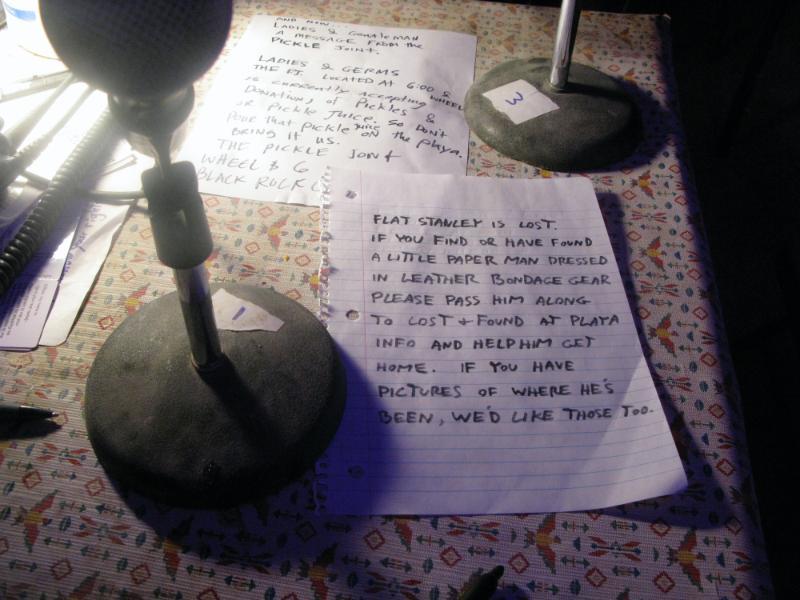 AND NOW...
LADIES & GENTLEMAN
A MESSAGE FROM the
PICKLE JOINT.
LADIES & GERMS
THE P.J. LOCATED AT 6:00 & WHEEL
is currently accepting
DONATIONS of PICKLES &
OR PICKLE JUICE. SO DON'T
POUR that PICKLE JUICE ON the playa.
BRING IT US.
THE PICKLE JOINT
WHEEL & 6
BLACK ROCK
3
1
FLAT STANLEY IS LOST.
IF YOU FIND OR HAVE FOUND
A LITTLE PAPER MAN DRESSED
IN LEATHER BONDAGE GEAR
PLEASE PASS HIM ALONG
TO LOST + FOUND AT PLAYA
INFO AND HELP HIM GET
HOME. IF YOU HAVE
PICTURES OF WHERE HE'S
BEEN, WE'D LIKE THOSE TOO.